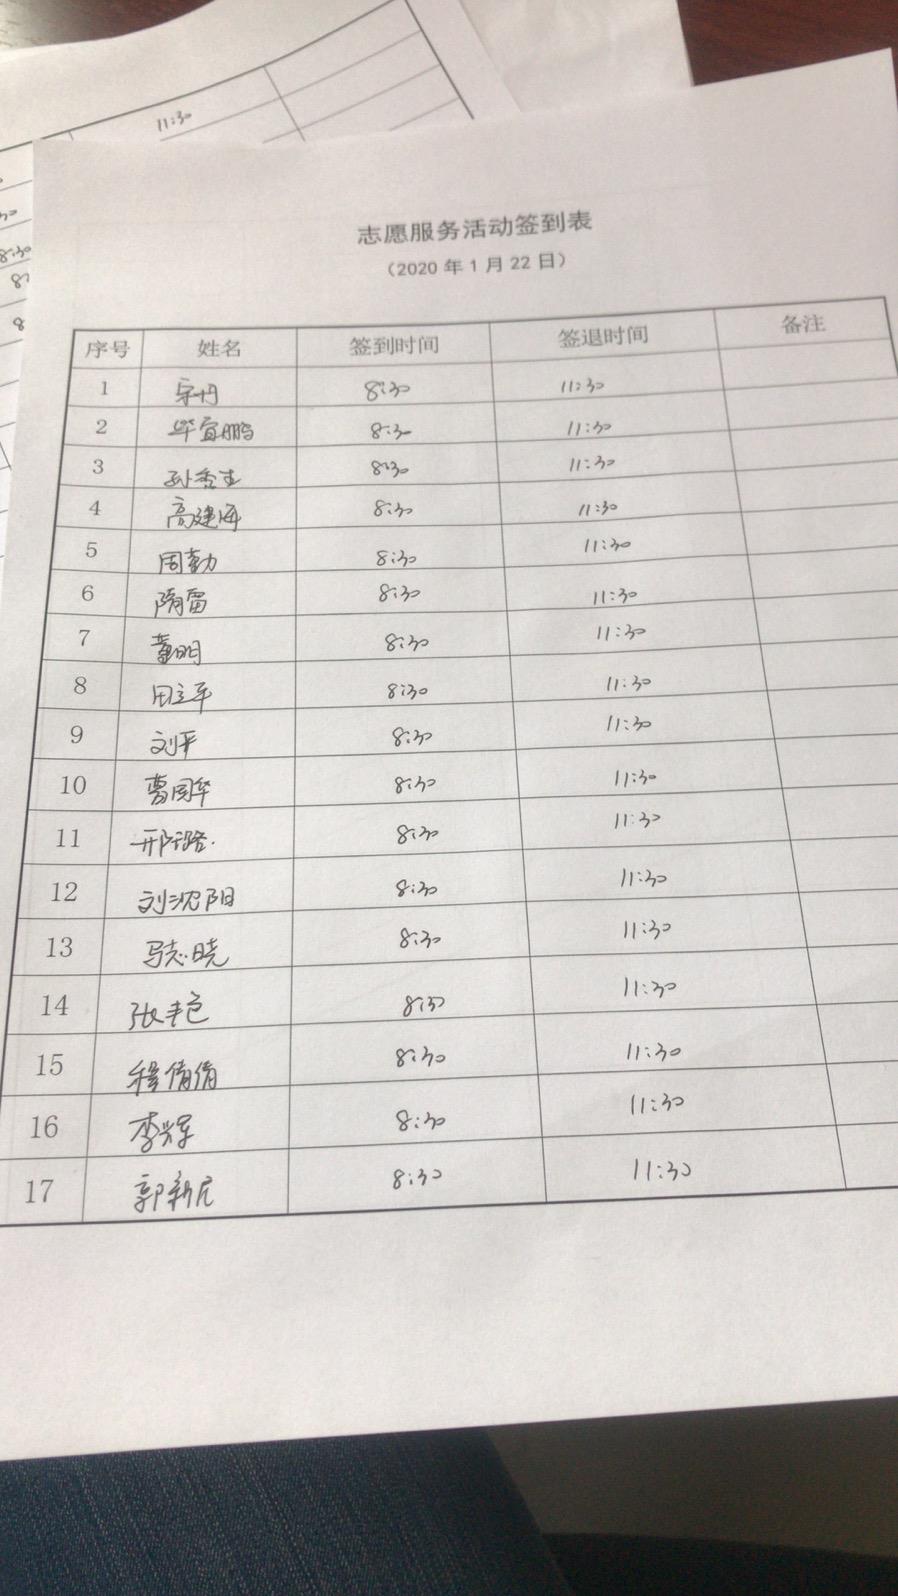 11:30
8:30
志愿服务活动签到表
(2020 年 1 月 22 日)
序号 姓名 签到时间 签退时间 备注
1 宋丹 8:30 11:30
2 毕宜鹏 8:30 11:30
3 8:30 11:30
4 高建海 8:30 11:30
5 周勤 8:30 11:30
6 隋雷 8:30 11:30
7 董明 8:30 11:30
8 田立平 8:30 11:30
9 刘平 8:30 11:30
10 曹同华 8:30 11:30
11 邢璐 8:30 11:30
12 刘沈阳 8:30 11:30
13 马志晓 8:30 11:30
14 8:30 11:30
15 程倩倩 8:30 11:30
16 李兴军 8:30 11:30
17 郭新尼 8:30 11:30